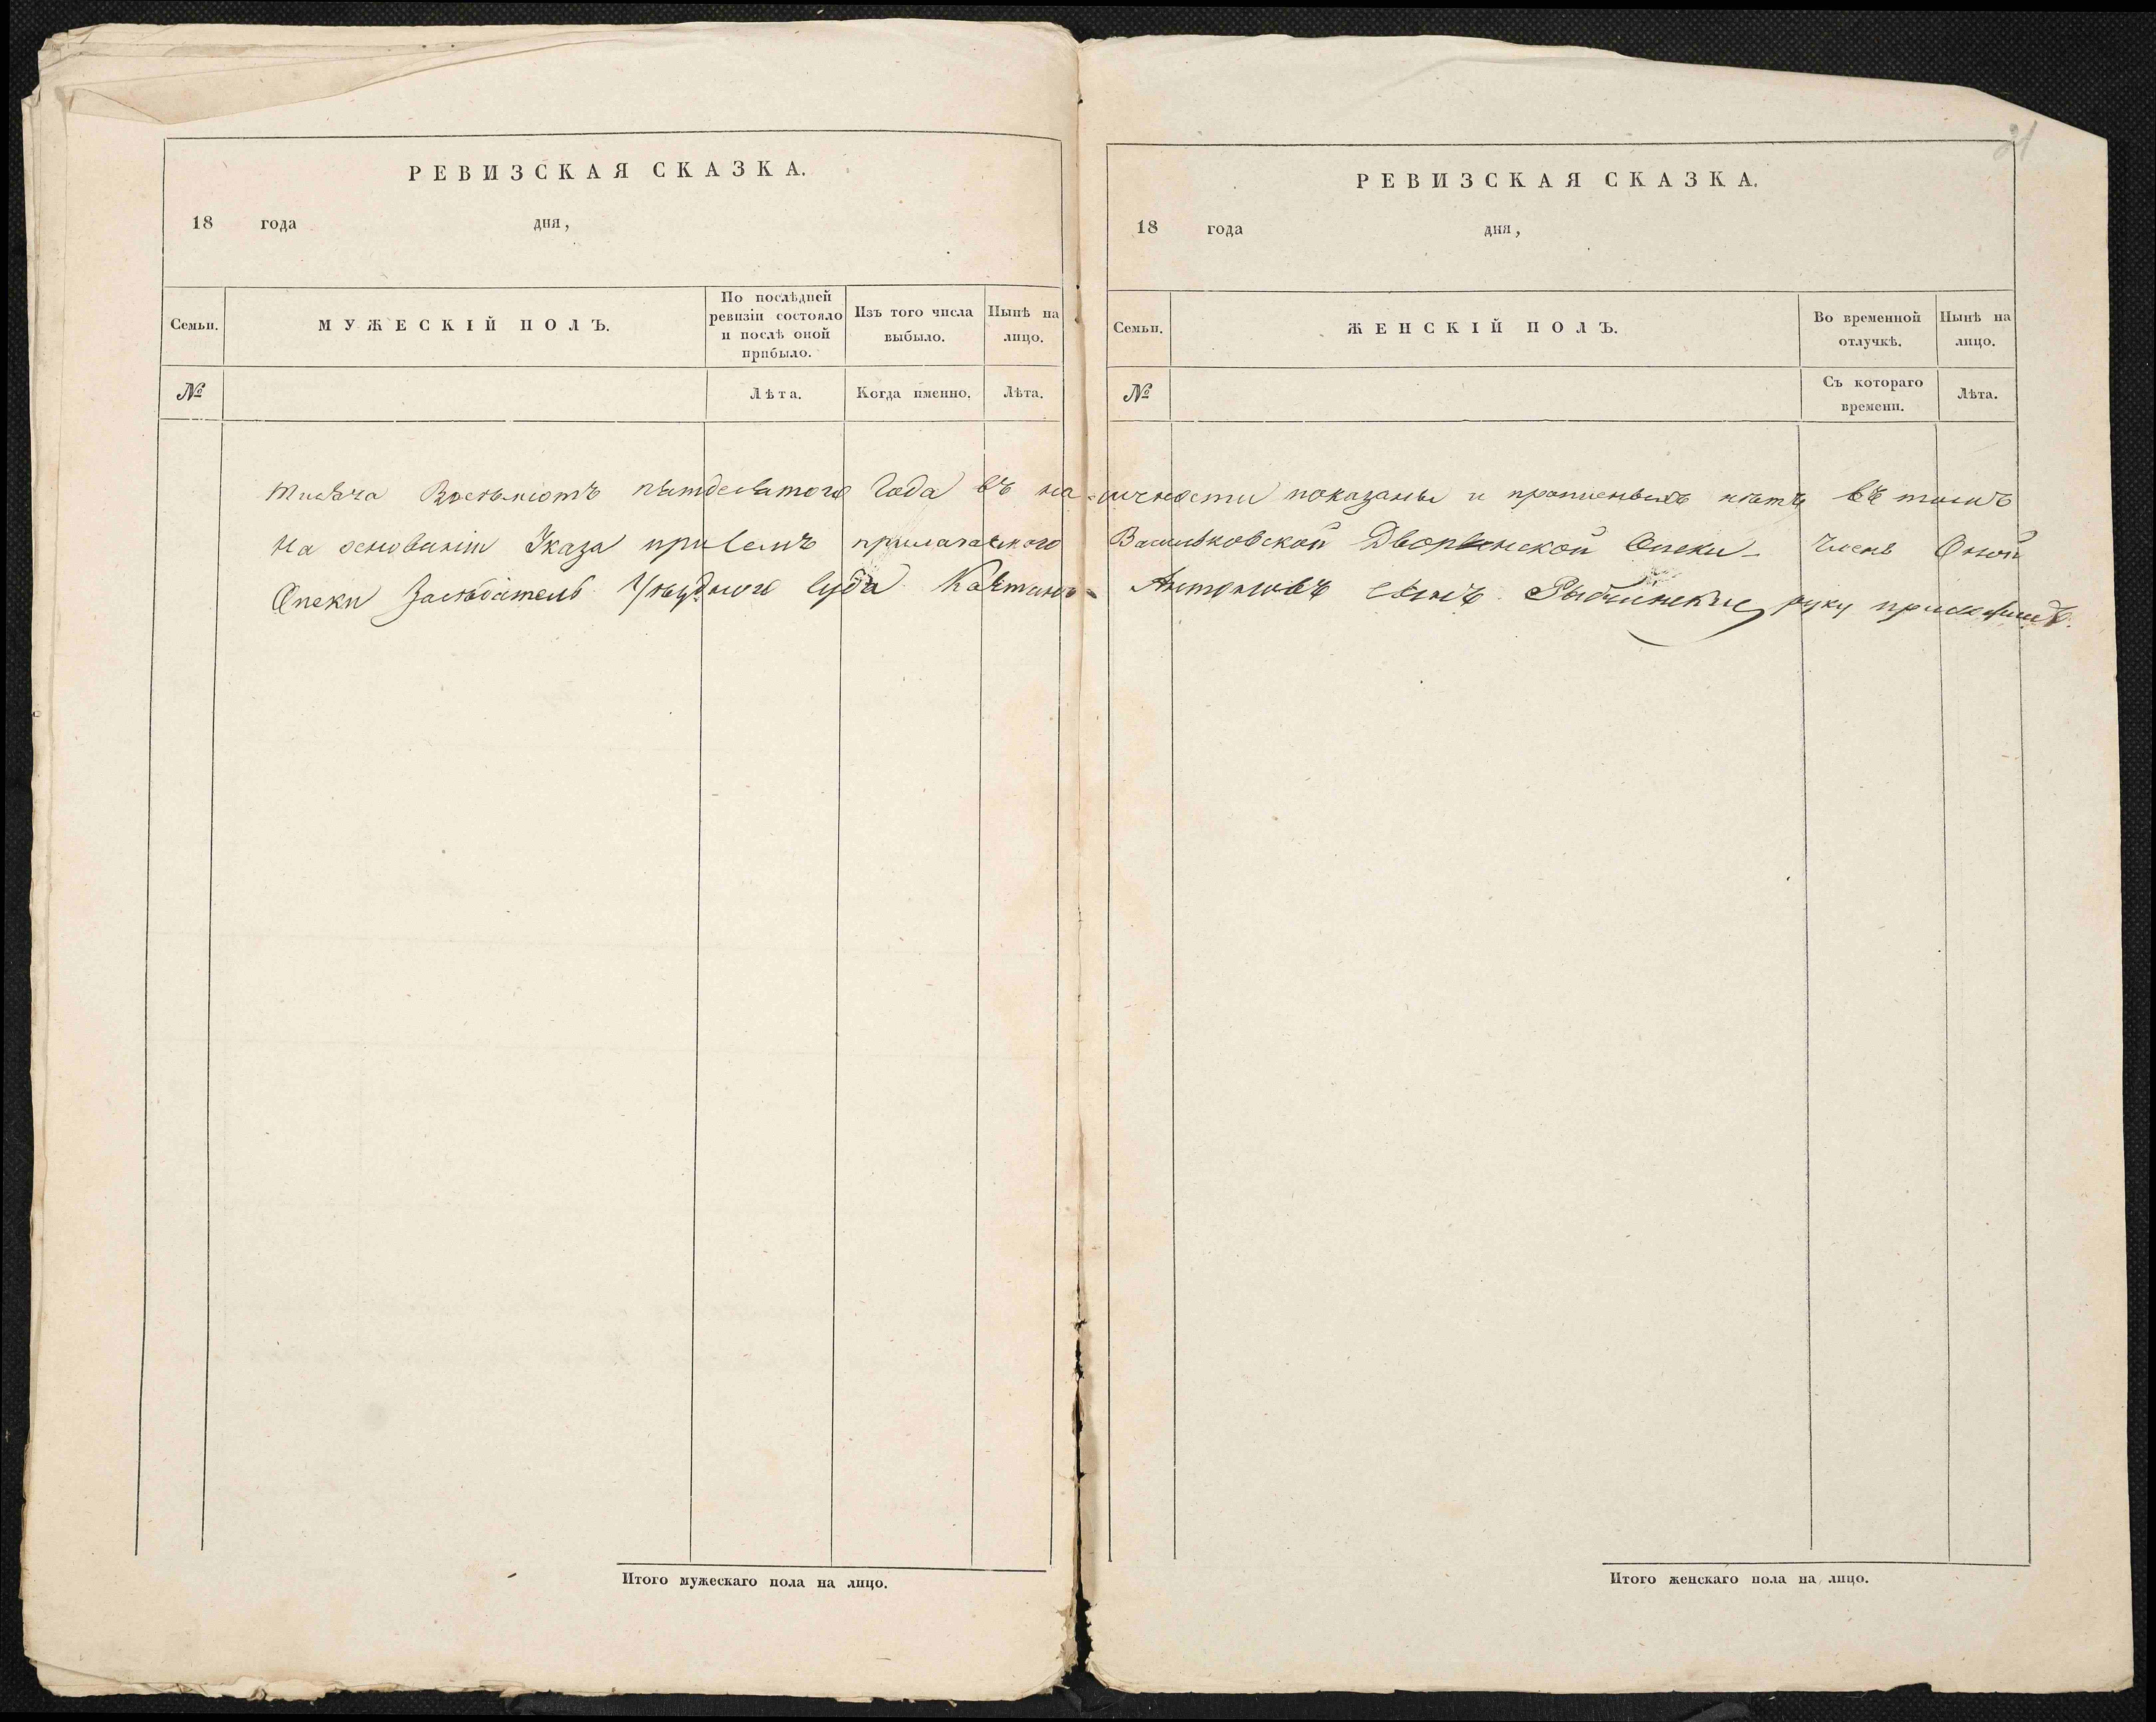 РЕВИЗСКАЯ СКАЗКА.
18 года дня,
Семьи.
МУЖЕСКІЙ ПОЛЪ.
По послѣдней ревизіи состояло и послѣ оной прибыло.
Изъ того числа выбыло.
Нынѣ на лицо.
№
Лѣта.
Когда именно.
Лѣта.
31
РЕВИЗСКАЯ СКАЗКА.
18 года дня,
Семьи.
ЖЕНСКІЙ ПОЛЪ.
Во временной отлучкѣ.
Нынѣ на лицо.
№
Съ котораго времени.
Лѣта.
тисяча Восемьсотъ пятдесятого Года въ на-личности показаны и прописныхъ нѣтъ въ томъ
На основаніи Указа при семъ прилагаемого Васильковской Дворянской Опеки Членъ Оной
Опеки Засѣдатель Уѣздного Суда Антоновъ сынъ руку приложилъ.
Итого мужескаго пола на лицо.
Итого женскаго пола на лицо.